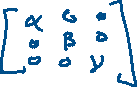 α 0 0
0 β 0
0 0 γ